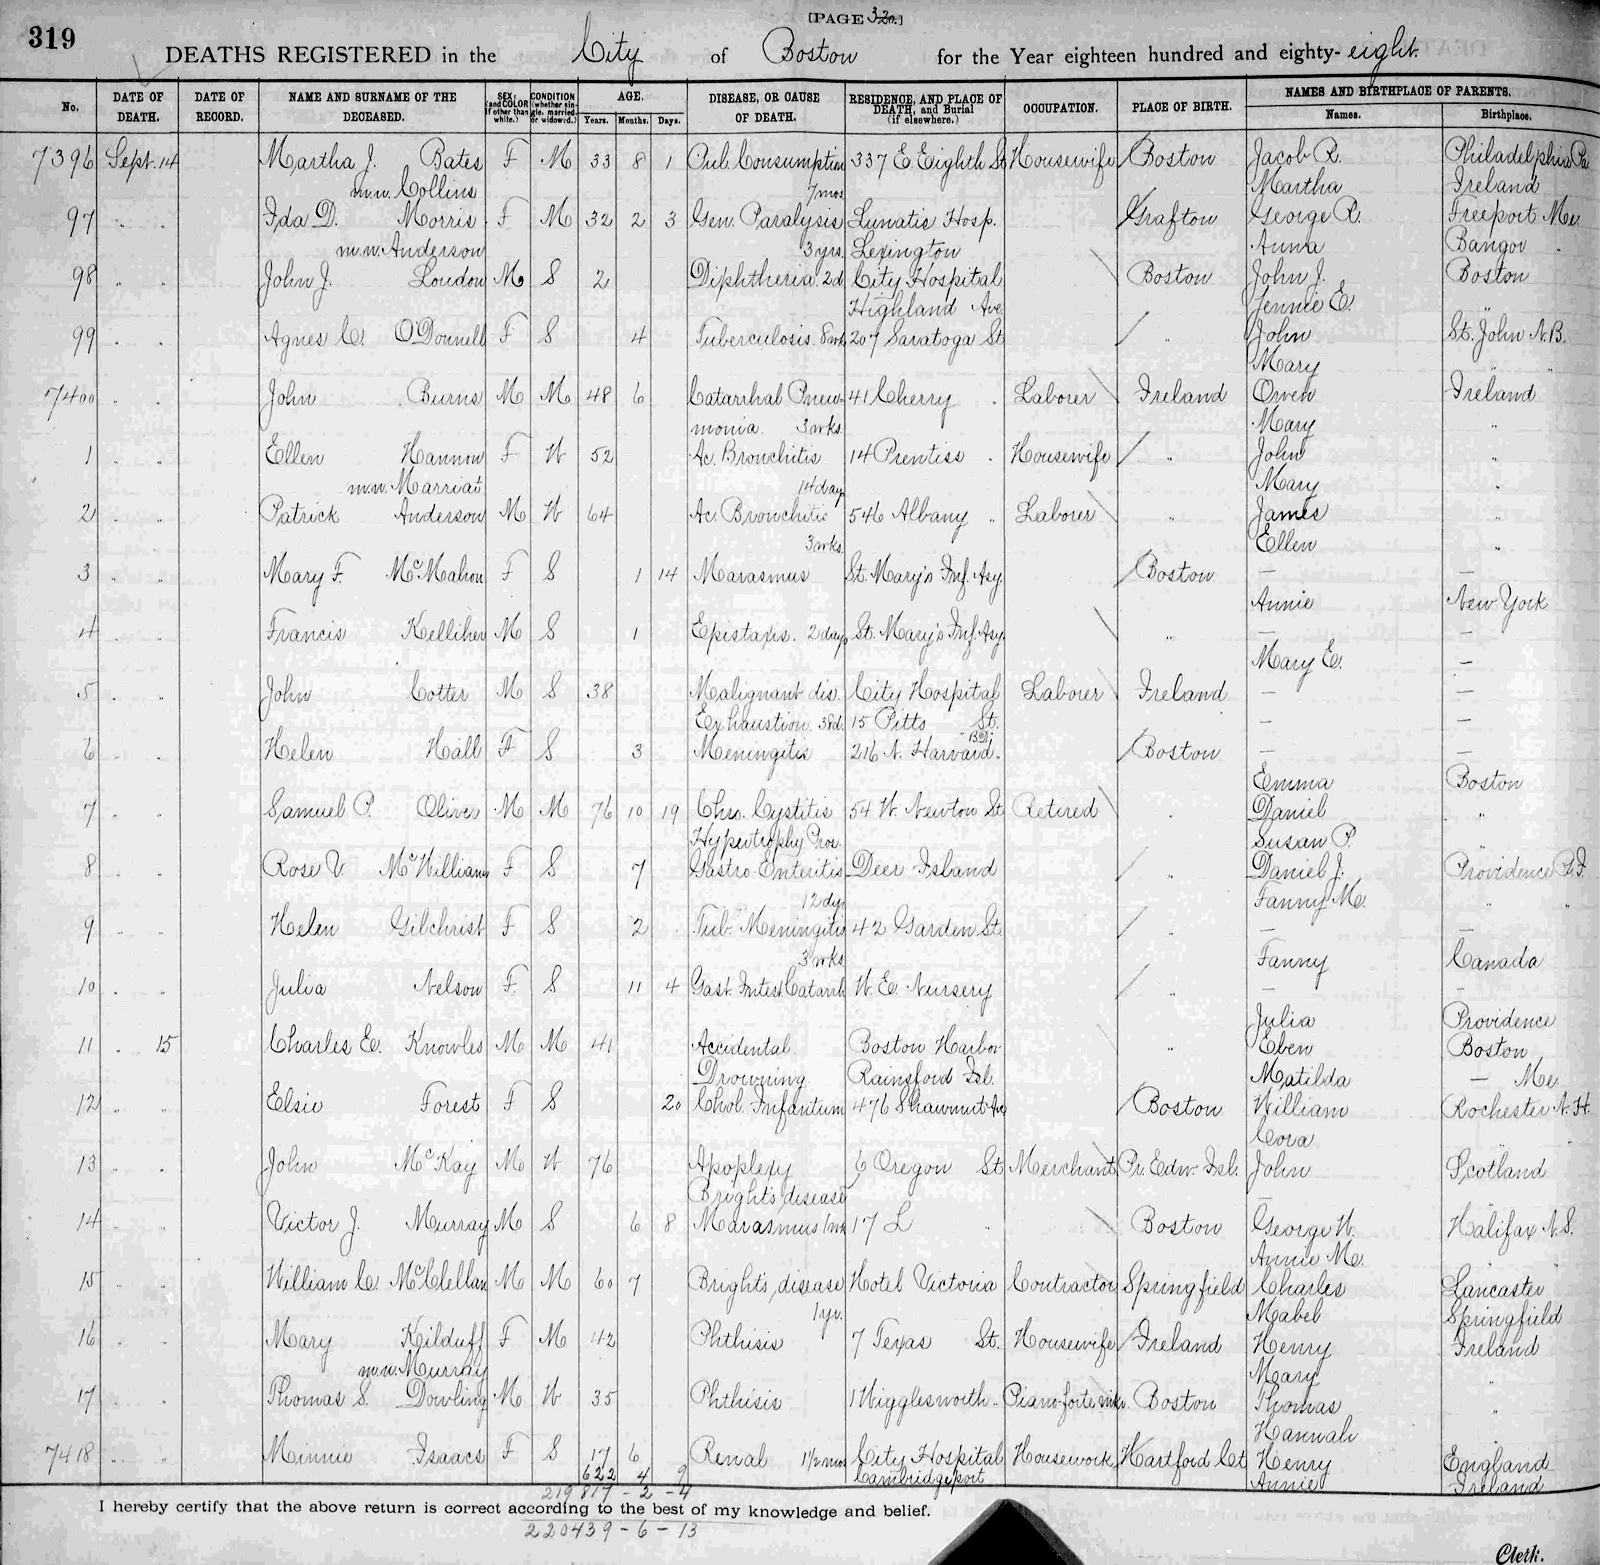 [PAGE 320.]
319
DEATHS REGISTERED in the City of Boston for the Year eighteen hundred and eighty-eight.
No. DATE OF DEATH. DATE OF RECORD. NAME AND SURNAME OF THE DECEASED. SEX; (and COLOR if other than white.) CONDITION (whether single, married, or widowed.) AGE. Years. Months. Days. DISEASE, OR CAUSE OF DEATH. RESIDENCE, AND PLACE OF DEATH, and Burial (if elsewhere.) OCCUPATION. PLACE OF BIRTH. NAMES AND BIRTHPLACE OF PARENTS. Names. Birthplace.
7396 Sept. 14 Martha J. Bates F M 33 8 1 Pul. Consumption 337 E Eighth St Housewife Boston Jacob R. Philadelphia Pa.
m.n. Collins 7 mos Martha Ireland
97 " " Ida D. Morris F M 32 2 3 Gen. Paralysis Lunatic Hosp. Grafton George R. Freeport Me.
m.n. Anderson 3 yrs. Lexington Anna Bangor "
98 " " John J. Loudon M S 2 Diphtheria 2d City Hospital Boston John J. Boston
Highland Ave. Jennie E. "
99 " " Agnes C. O'Donnell F S 4 Tuberculosis 8 wks 207 Saratoga St " John St. John N.B.
Mary " "
7400 " " John Burns M M 48 6 Catarrhal Pneu- 41 Cherry " Laborer Ireland Owen Ireland
monia. 3 wks. Mary "
1 " " Ellen Hannon F W 52 Ac. Bronchitis 14 Prentiss " Housewife " John "
m.n. Marriat 14 days Mary "
2 " " Patrick Anderson M W 64 Ac. Bronchitis 546 Albany " Laborer " James "
3 wks. Ellen "
3 " " Mary F. McMahon F S 1 14 Marasmus St. Mary's Inf. Asy. Boston — —
Annie New York
4 " " Francis Kelliher M S 1 Epistaxis. 2 days St. Mary's Inf. Asy. " — —
Mary E. —
5 " " John Cotter M S 38 Malignant dis. City Hospital Laborer Ireland — —
Exhaustion 38d. 15 Pitts St. — —
6 " " Helen Hall F S 3 Meningitis 216 N. Harvard. Boston — —
Emma Boston
7 " " Samuel P. Oliver M M 76 10 19 Chro. Cystitis 54 W. Newton St Retired " Daniel "
Hypertrophy Pros. Susan P. "
8 " " Rose V. McWilliams F S 7 Gastro Enteritis Deer Island " Daniel J. Providence R.I.
12 dys Fanny M. " "
9 " " Helen Gilchrist F S 2 Tub. Meningitis 42 Garden St. " — —
3 wks. Fanny Canada
10 " " Julia Nelson F S 11 4 Gast. Intest. Catarrh N. E. Nursery " — —
Julia Providence
11 " 15 Charles E. Knowles M M 41 Accidental Boston Harbor " Eben Boston
Drowning Rainsford Isl. Matilda — Me.
12 " " Elsie Forest F S 20 Chol. Infantum 476 Shawmut Av Boston William Rochester N.H.
Cora "
13 " " John McKay M W 76 Apoplexy 6 Oregon St Merchant Pr. Edw. Isl. John Scotland
Bright's disease — "
14 " " Victor J. Murray M S 6 8 Marasmus 1 wk 17 L " Boston George W. Halifax N.S.
Annie M. " "
15 " " William C. McClellan M M 60 7 Bright's disease Hotel Victoria Contractor Springfield Charles Lancaster
1 yr. Mabel Springfield
16 " " Mary Kilduff F M 42 Phthisis 7 Texas St. Housewife Ireland Henry Ireland
m.n. Murray Mary "
17 " " Thomas S. Dowling M W 35 Phthisis 1 Wigglesworth " Piano-forte mkr. Boston Thomas "
Hannah "
7418 " " Minnie Isaacs F S 17 6 Renal 1½ mos City Hospital Housework Hartford Ct Henry England
622 4 9 Cambridgeport Annie Ireland
219817 - 2 - 4
I hereby certify that the above return is correct according to the best of my knowledge and belief.
220439 - 6 - 13
Clerk.